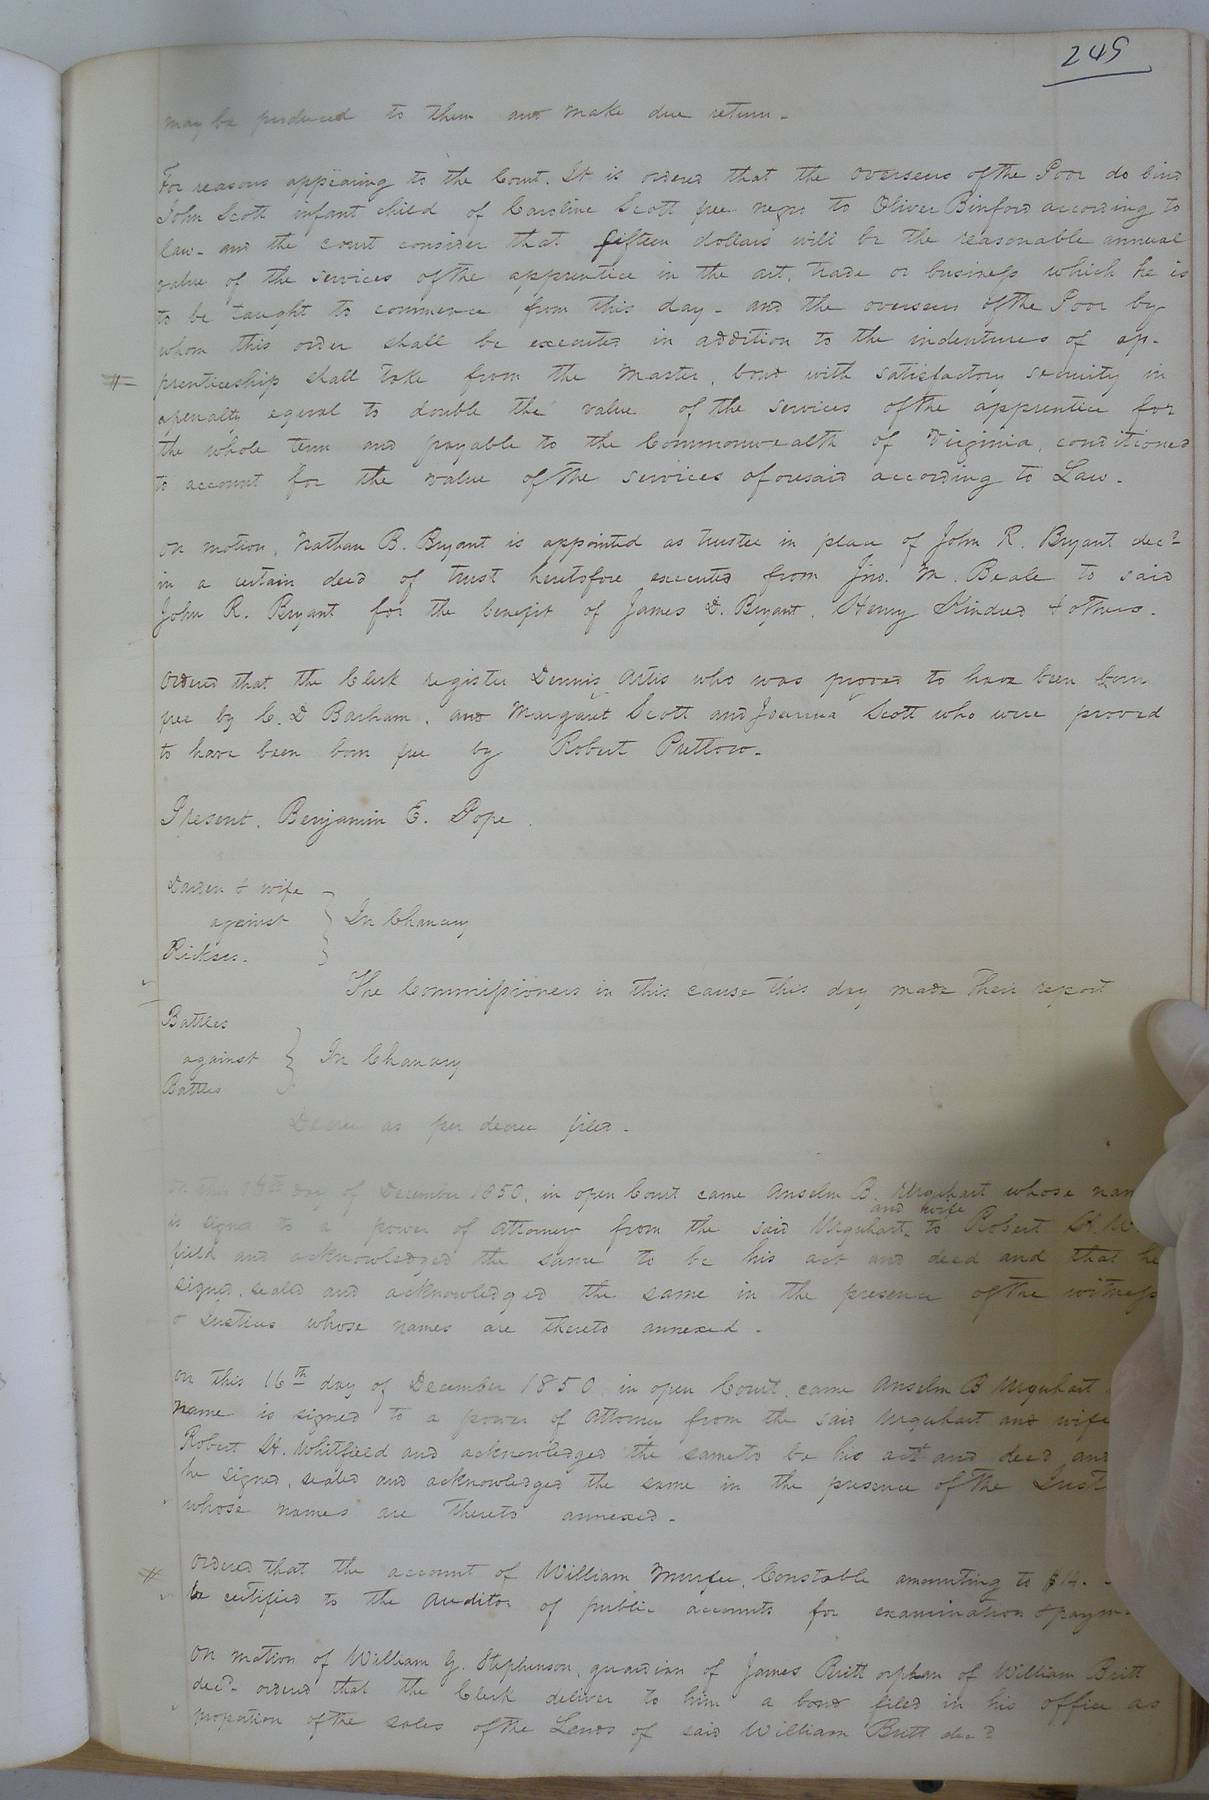 249
may be produced to them and make due return -
For reasons appearing to the Court. It is ordered that the overseers of the Poor do bind
John Scott infant child of Caroline Scott free negro to Oliver Binford according to
law - and the court consider that fifteen dollars will be the reasonable annual
value of the services of the apprentice in the art, trade or business which he is
to be taught to commence from this day - and the overseers of the Poor by
whom this order shall be executed in addition to the indentures of ap-
prenticeship shall take from the Master, bond with satisfactory security in
a penalty equal to double the value of the services of the apprentice for
the whole term and payable to the Commonwealth of Virginia, conditioned
to account for the value of the services aforesaid according to Law -
On motion, Nathan B. Bryant is appointed as trustee in place of John R. Bryant decd
in a certain deed of trust heretofore executed from Jno. M. Beale to said
John R. Bryant for the benefit of James D. Bryant, Henry Kindred & others -
Ordered that the Clerk register Dennis Artis who was proved to have been born
free by C. D Barham, and Margaret Scott and Joanna Scott who were proved
to have been born free by Robert Pretlow -
Present, Benjamin E. Pope
Darden & wife
against } In Chancery
Ricks
The Commissioners in this cause this day made their report
Battles
against } In Chancery
Battles
Decree as per decree filed -
On this 16th day of December 1850, in open Court came Anselm B. Urquhart whose
and wife
is signed to a power of attorney from the said Urquhart to Robert H. W
field and acknowledged the same to be his act and deed and that he
signed, sealed and acknowledged the same in the presence of the witness
& Justices whose names are thereto annexed -
On this 16th day of December 1850, in open Court, came Anselm B Urquhart
name is signed to a power of attorney from the said Urquhart and wife
Robert H. Whitfield and acknowledged the same to be his act and deed and
he signed, sealed and acknowledged the same in the presence of the Just
whose names are thereto annexed -
Ordered that the account of William Constable amounting to $14. -
be certified to the Auditor of public accounts for examination & paym
On motion of William G. Stephenson, guardian of James Britt orphan of William Britt
decd ordered that the Clerk deliver to him a bond filed in his office as
proportion of the sales of the Lands of said William Britt decd